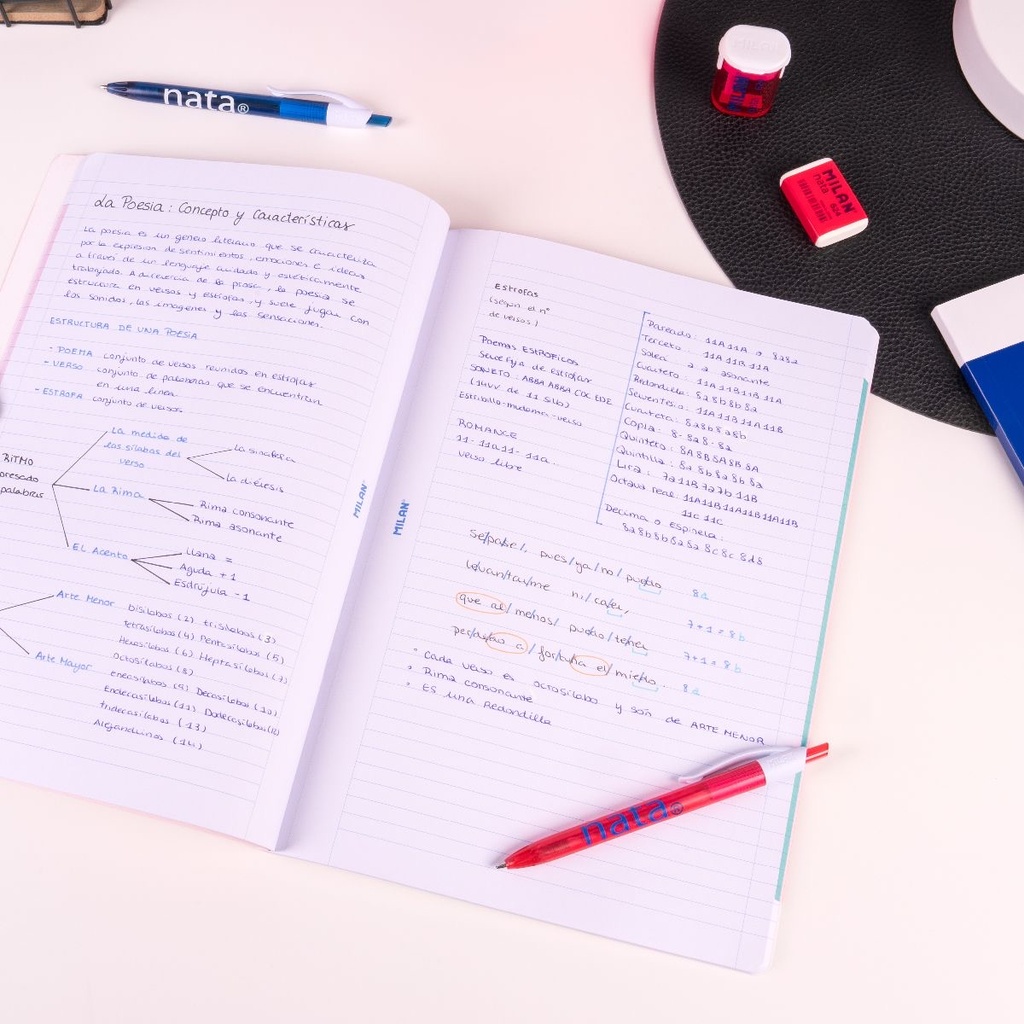 nata®
MILAN
MILAN
nata 624
La Poesía: Concepto y Características
La poesía es un género literario que se caracteriza
por la expresión de sentimientos, emociones e ideas
a través de un lenguaje cuidado y estéticamente
trabajado. A diferencia de la prosa, la poesía se
estructura en versos y estrofas, y suele jugar con
los sonidos, las imágenes y las sensaciones.
ESTRUCTURA DE UNA POESÍA
- POEMA conjunto de versos reunidos en estrofas
- VERSO conjunto de palabras que se encuentran
en una línea
- ESTROFA conjunto de versos
RITMO
palabras
La medida de
las sílabas del
verso
La sinalefa
La diéresis
La Rima
Rima consonante
Rima asonante
EL Acento
Llana =
Aguda +1
Esdrújula -1
Arte Menor
Bisílabos (2) trisílabos (3)
Tetrasílabos (4) Pentasílabos (5)
Hexasílabos (6) Heptasílabos (7)
Octosílabos (8)
Arte Mayor
eneasílabos (9) Decasílabos (10)
Endecasílabos (11) Dodecasílabos (12)
tridecasílabos (13)
Alejandrinos (14)
MILAN®
MILAN®
ESTROFAS
(según el nº
de versos)
Poemas ESTRÓFICOS
de estrofas
SONETO: ABBA ABBA CDC EDE
(14vv de 11 síla)
Estribillo-mudanza-verso
ROMANCE
11- 11a 11- 11a..
verso libre
Pareado: 11A 11A o 8a8a
Terceto: 11A 11B 11A
Solea a - a asonante
Cuarteto: 11A 11B 11B 11A
Redondilla: 8a 8b 8b 8a
Serventesio: 11A 11B 11A 11B
Cuarteta: 8a 8b 8a 8b
Copla: 8- 8a 8- 8a
Quinteto: 8A 8B 8A 8B 8A
Quintilla: 8a 8b 8a 8b 8a
Lira: 7a 11B 7a 7b 11B
Octava real: 11A 11B 11A 11B 11A 11B
11C 11C
Décima o espinela:
8a 8b 8b 8a 8a 8c 8c 8d 8
pues/ya/no/puedo 8a
levan/tar/me ni/ 7+1=8b
que al/menos/ puedo/tener 7+1=8b
el/miedo. 8a
• Cada verso es octosílabo y son de ARTE MENOR
• Rima consonante
• Es una Redondilla
nata®